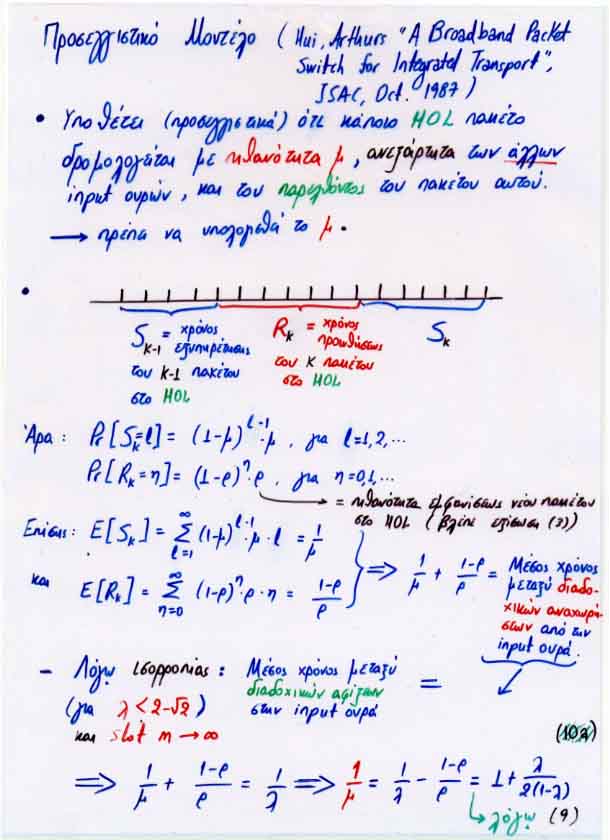 Προσεγγιστικό Μοντέλο ( Hui, Arthurs "A Broadband Packet
Switch for Integrated Transport",
JSAC, Oct. 1987 )
• Υποθέτει (προσεγγιστικά) ότι κάποιο HOL πακέτο
δρομολογείται με πιθανότητα μ, ανεξάρτητα των άλλων
input ουρών, και του παρελθόντος του πακέτου αυτού.
→ πρέπει να υπολογισθεί το μ.
S_{k-1} = χρόνος εξυπηρέτησης
του k-1 πακέτου
στο HOL
R_k = χρόνος προωθήσεως
του k πακέτου
στο HOL
S_k
Άρα: Pr[S_k=l] = (1-μ)^{l-1}·μ, για l=1,2,...
Pr[R_k=η] = (1-ρ)^η·ρ, για η=0,1,...
= πιθανότητα εμφανίσεως νέου πακέτου
στο HOL (βλέπε επίσωση (3))
Επίσης: E[S_k] = Σ_{l=1}^{∞} (1-μ)^{l-1}·μ·l = 1/μ
και E[R_k] = Σ_{η=0}^{∞} (1-ρ)^η ρ·η = (1-ρ)/ρ
⟹ 1/μ + (1-ρ)/ρ = Μέσος χρόνος
μεταξύ διαδο-
χικών αναχωρή-
σεων από την
input ουρά.
- Λόγω ισορροπίας: Μέσος χρόνος μεταξύ
(για λ < 2-√2) διαδοχικών αφίξεων =
και slot m → ∞ στην input ουρά
(10a)
⟹ 1/μ + (1-ρ)/ρ = 1/λ ⟹ 1/μ = 1/λ - (1-ρ)/ρ = 1 + λ/(2(1-λ))
λόγω (9)